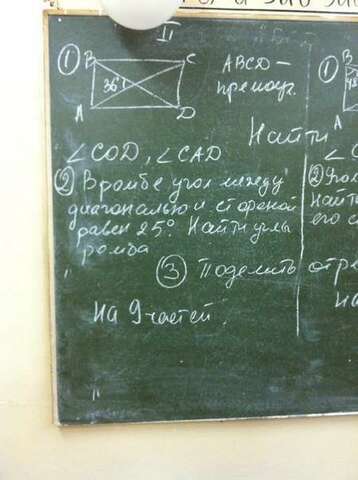 II
① B C ABCD –
36° прямоуг.
A D
Найти
∠COD, ∠CAD
② В ромбе угол между
диагональю и стороной
равен 25°. Найти углы
ромба
③ Поделить отре
на 9 частей.
①
B
∠C
②
Найти
его с
на